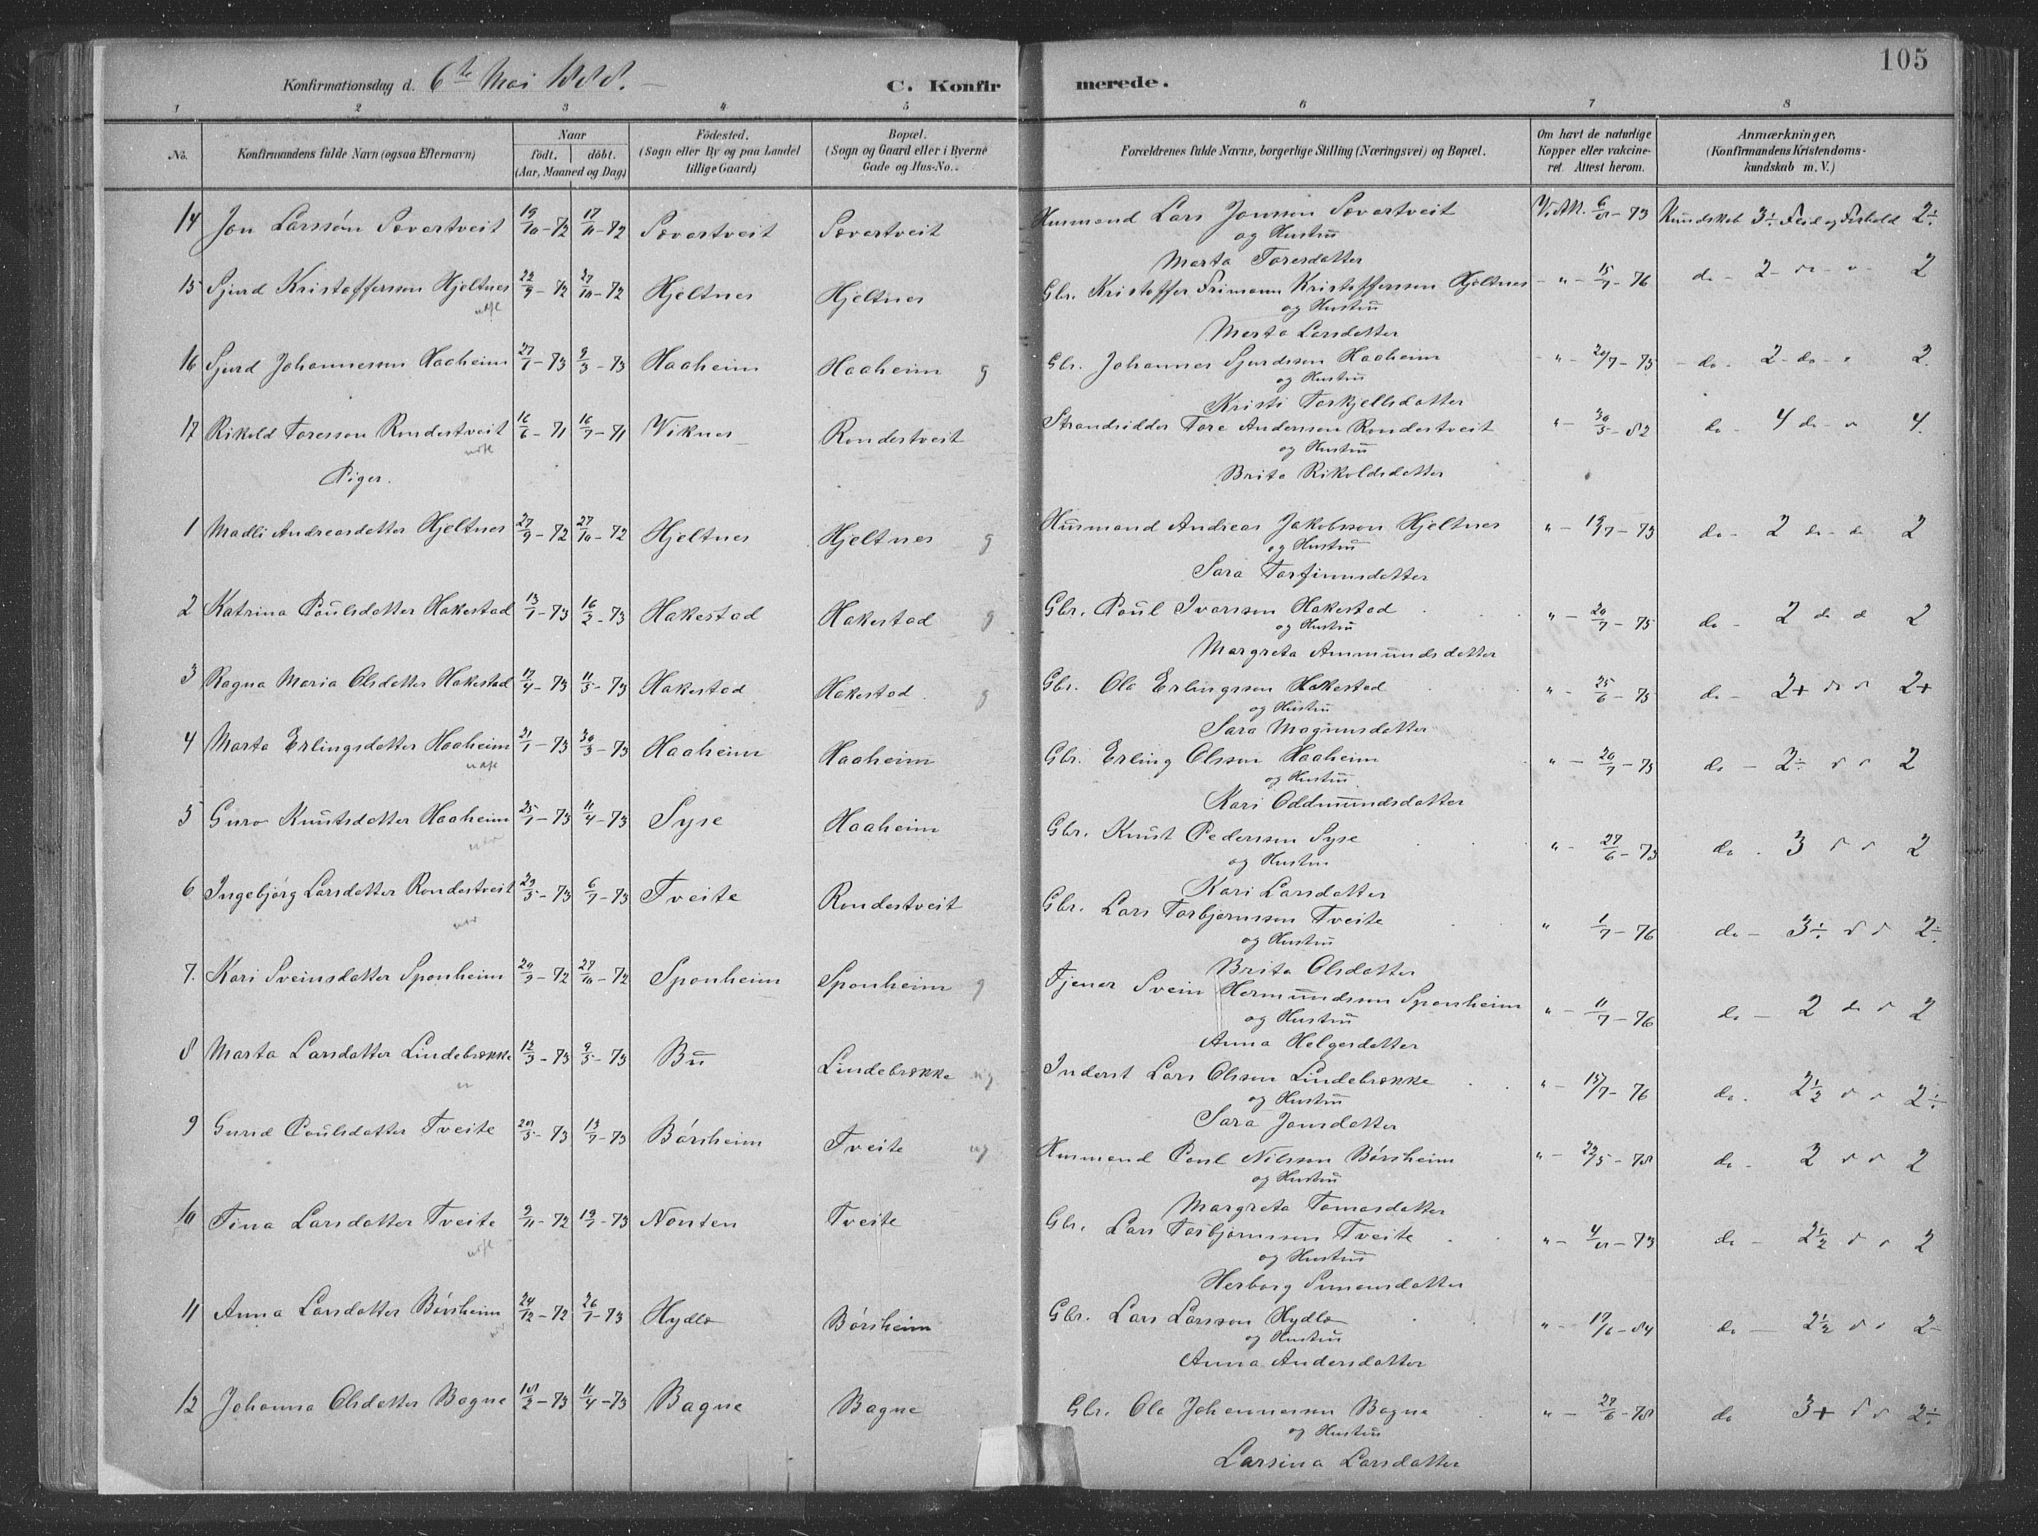 105
Konfirmationsdag d. 6te Mai 1888. —
C. Konfirmerede.
1 2 3 4 5 6 7 8
No.
Konfirmandens fulde Navn (ogsaa Efternavn)
Naar
födt. döbt.
(Aar, Maaned og Dag)
Födested.
(Sogn eller By og paa Landet
tillige Gaard)
Bopæl.
(Sogn og Gaard eller i Byerne
Gade og Hus-No.
Forældrenes fulde Navne, borgerlige Stilling (Næringsvei) og Bopæl.
Om havt de naturlige
Kopper eller vakcine-
ret. Attest herom.
Anmærkninger.
(Konfirmandens Kristendoms-
kundskab m. V.)
14 Jon Larssøn Sævartveit 19/10-72 17/11-72 Sævartveit Sævartveit Husmand Lars Jonsson Sævartveit V. Att. 6/8-73 Kundskab 3÷ Flid og Forhold 2÷
og Hustru
Marta Toresdatter
15 Sjurd Kristoffersson Hjeltnes 22/9-72 27/10-72 Hjeltnes Hjeltnes Gbr. Kristoffer Frimann Kristoffersson Hjeltnes " 15/7-76 do - 2 - 2
og Hustru
Marta Larsdatter
16 Sjurd Johannesson Haaheim 27/1-73 9/3-73 Haaheim Haaheim g Gbr. Johannes Sjurdsson Haaheim " - 20/7-75 - do - 2 - do - " 2.
og Hustru
Kristi Torkjellsdatter
17 Rikold Toresson Rondestveit 16/6-71 16/7-71 Viknes Rondestveit Strandsidder Tore Andersson Rondestveit " - 30/5-82 do - 4 do - " 4.
og Hustru
Brita Rikoldsdatter
Piger.
1 Madli Andreasdatter Hjeltnes 27/9-72 27/10-72 Hjeltnes Hjeltnes g Husmand Andreas Jakobsson Hjeltnes " - 19/7-73 do - 2 do - do 2
og Hustru
Sara Torfinnsdatter
2 Katrina Poulsdatter Hakestad 13/1-73 16/2-73 Hakestad Hakestad g Gbr. Poul Ivarsson Hakestad " - 20/7-75 do - 2 do d 2
og Hustru
Margreta Ammundsdatter
3 Ragna Maria Olsdatter Hakestad 17/4-73 11/5-73 Hakestad Hakestad. g Gbr. Ola Erlingsson Hakestad " - 25/6-75 do - 2+ 2+
og Hustru
Sara Magnusdatter
4 Marta Erlingsdatter Haaheim 21/1-73 30/3-73 Haaheim Haaheim Gbr. Erling Olsson Haaheim " - 20/7-75 do - 2÷ 2
og Hustru
Kari Oddmundsdatter
5 Guro Knutsdatter Haaheim 25/1-73 11/4-73 Syse Haaheim Gbr. Knut Pedersson Syse " - 27/6-73 do - 3 2
og Hustru
Kari Larsdatter
6 Ingebjørg Larsdatter Rondestveit 29/5-73 6/7-73 Tveite Rondestveit Gbr. Lars Torbjørnsson Tveite " 1/7-76 do - 3÷ 2÷
og Hustru
Brita Olsdatter
7. Kari Sveinsdatter Sponheim 20/9-72 27/10-72 Sponheim Sponheim g Tjener Svein Hermundsson Sponheim " - 11/7-76 do - 2 do 2
og Hustru
Anna Helgesdatter
8 Marta Larsdatter Lindebrække 12/3-73 9/5-73 Bu Lindebrække ug Inderst Lars Olsson Lindebrække " - 15/7-76 do. 2½ 2÷
og Hustru
Sara Jonsdatter
9 Gurid Poulsdatter Tveite 20/5-73 13/7-73 Børsheim Tveite ug Husmand Poul Nilsson Børsheim " - 22/5-78 do - 2 2
og Hustru
Margreta Tomasdatter
10 Tina Larsdatter Tveite 9/11-72 19/1-73 Nonten Tveite Gbr. Lars Torbjørnsson Tveite " - 4/8-73 do - 2½ 2
og Hustru
Herborg Simonsdatter
11 Anna Larsdatter Børsheim 24/12-72 26/1-73 Hydle Børsheim Gbr. Lars Larsson Hydle " - 17/6-84 do - 2½ 2-
og Hustru
Anna Andersdatter
12 Johanna Olsdatter Bagne 18/2-73 11/4-73 Bagne Bagne Gbr. Ola Johannesson Bagne " - 27/6-78 do 3+ 2÷
og Hustru
Larsina Larsdatter